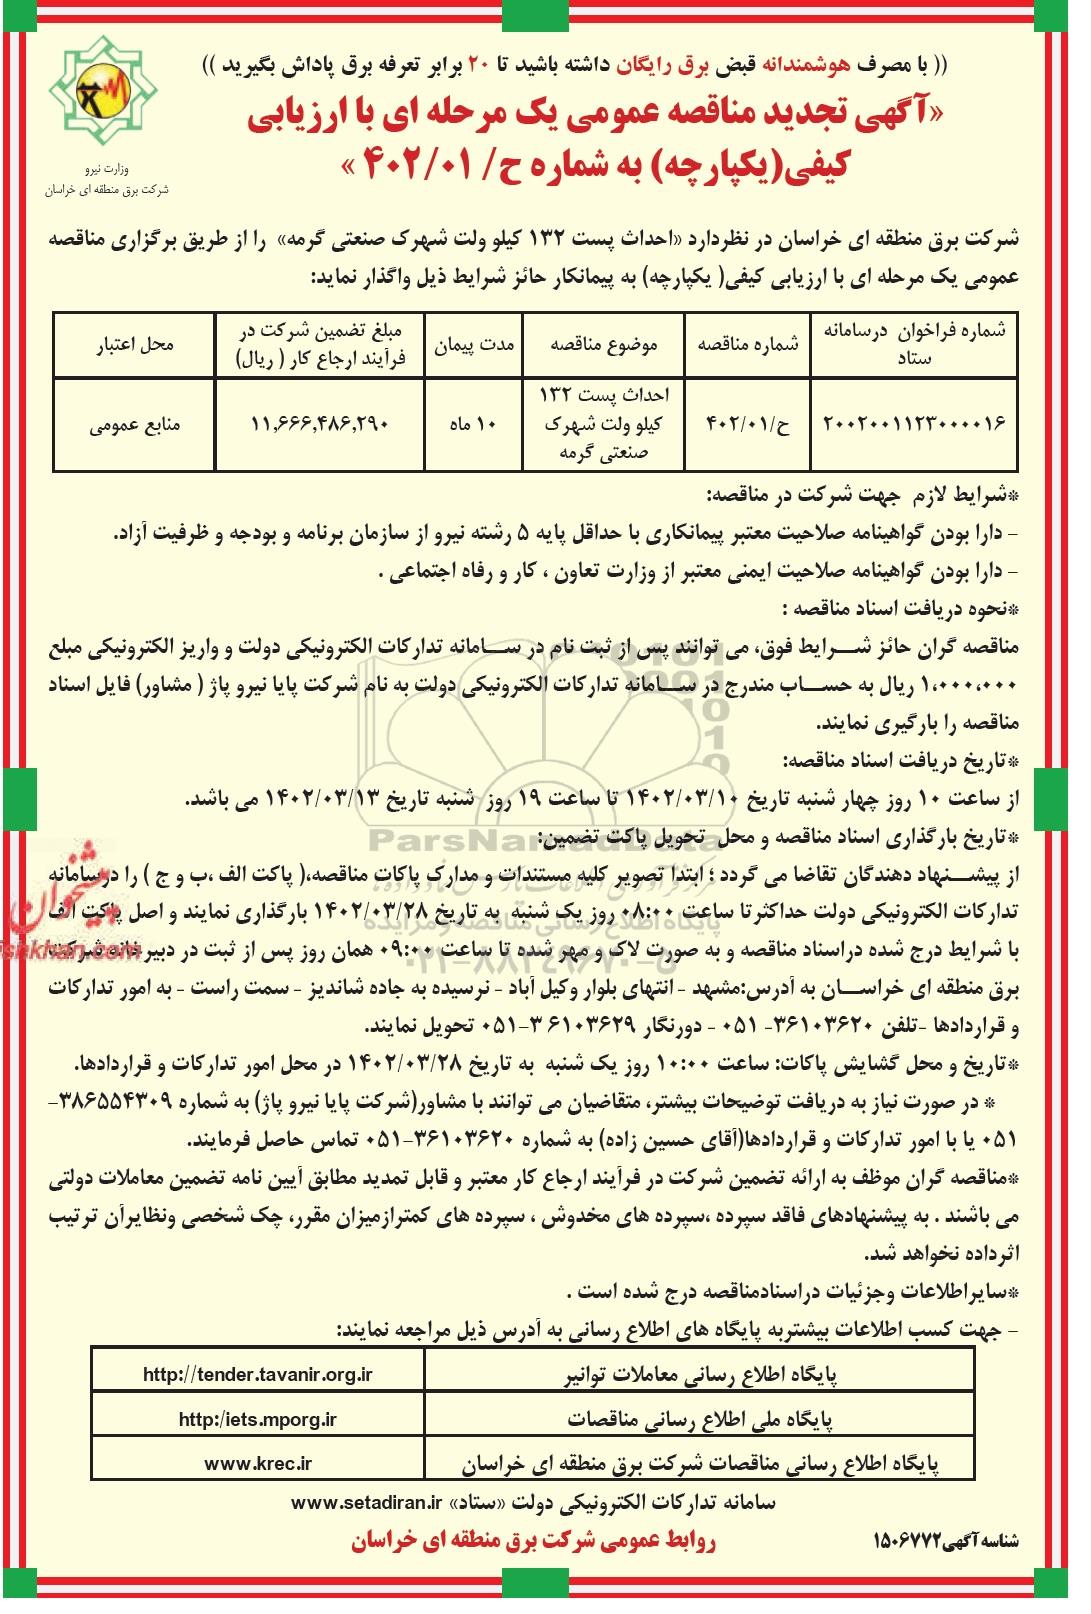 (( با مصرف هوشمندانه قبض برق رایگان داشته باشید تا ۲۰ برابر تعرفه برق پاداش بگیرید ))
«آگهی تجدید مناقصه عمومی یک مرحله ای با ارزیابی
کیفی(یکپارچه) به شماره ح/ ۴۰۲/۰۱ »
وزارت نیرو
شرکت برق منطقه ای خراسان
شرکت برق منطقه ای خراسان در نظردارد «احداث پست ۱۳۲ کیلو ولت شهرک صنعتی گرمه» را از طریق برگزاری مناقصه
عمومی یک مرحله ای با ارزیابی کیفی( یکپارچه) به پیمانکار حائز شرایط ذیل واگذار نماید:
شماره فراخوان درسامانه ستاد
شماره مناقصه
موضوع مناقصه
مدت پیمان
مبلغ تضمین شرکت در فرآیند ارجاع کار ( ریال)
محل اعتبار
۲۰۰۲۰۰۱۱۲۳۰۰۰۰۱۶
ح/۴۰۲/۰۱
احداث پست ۱۳۲ کیلو ولت شهرک صنعتی گرمه
۱۰ ماه
۱۱,۶۶۶,۴۸۶,۲۹۰
منابع عمومی
*شرایط لازم جهت شرکت در مناقصه:
- دارا بودن گواهینامه صلاحیت معتبر پیمانکاری با حداقل پایه ۵ رشته نیرو از سازمان برنامه و بودجه و ظرفیت آزاد.
- دارا بودن گواهینامه صلاحیت ایمنی معتبر از وزارت تعاون ، کار و رفاه اجتماعی .
*نحوه دریافت اسناد مناقصه :
مناقصه گران حائز شرایط فوق، می توانند پس از ثبت نام در سامانه تدارکات الکترونیکی دولت و واریز الکترونیکی مبلغ
۱,۰۰۰,۰۰۰ ریال به حساب مندرج در سامانه تدارکات الکترونیکی دولت به نام شرکت پایا نیرو پاژ ( مشاور) فایل اسناد
مناقصه را بارگیری نمایند.
*تاریخ دریافت اسناد مناقصه:
از ساعت ۱۰ روز چهار شنبه تاریخ ۱۴۰۲/۰۳/۱۰ تا ساعت ۱۹ روز شنبه تاریخ ۱۴۰۲/۰۳/۱۳ می باشد.
*تاریخ بارگذاری اسناد مناقصه و محل تحویل پاکت تضمین:
از پیشنهاد دهندگان تقاضا می گردد ؛ ابتدا تصویر کلیه مستندات و مدارک پاکات مناقصه،( پاکت الف ،ب و ج ) را درسامانه
تدارکات الکترونیکی دولت حداکثرتا ساعت ۰۸:۰۰ روز یک شنبه به تاریخ ۱۴۰۲/۰۳/۲۸ بارگذاری نمایند و اصل پاکت الف
با شرایط درج شده دراسناد مناقصه و به صورت لاک و مهر شده تا ساعت ۰۹:۰۰ همان روز پس از ثبت در دبیرخانه شرکت
برق منطقه ای خراسان به آدرس:مشهد - انتهای بلوار وکیل آباد - نرسیده به جاده شاندیز - سمت راست - به امور تدارکات
و قراردادها -تلفن ۳۶۱۰۳۶۲۰- ۰۵۱ - دورنگار ۶۱۰۳۶۲۹ ۳-۰۵۱ تحویل نمایند.
*تاریخ و محل گشایش پاکات: ساعت ۱۰:۰۰ روز یک شنبه به تاریخ ۱۴۰۲/۰۳/۲۸ در محل امور تدارکات و قراردادها.
* در صورت نیاز به دریافت توضیحات بیشتر، متقاضیان می توانند با مشاور(شرکت پایا نیرو پاژ) به شماره ۳۸۶۵۵۴۳۰۹-
۰۵۱ یا با امور تدارکات و قراردادها(آقای حسین زاده) به شماره ۳۶۱۰۳۶۲۰-۰۵۱ تماس حاصل فرمایند.
*مناقصه گران موظف به ارائه تضمین شرکت در فرآیند ارجاع کار معتبر و قابل تمدید مطابق آیین نامه تضمین معاملات دولتی
می باشند . به پیشنهادهای فاقد سپرده ،سپرده های مخدوش ، سپرده های کمترازمیزان مقرر، چک شخصی ونظایرآن ترتیب
اثرداده نخواهد شد.
*سایراطلاعات وجزئیات دراسنادمناقصه درج شده است .
- جهت کسب اطلاعات بیشتربه پایگاه های اطلاع رسانی به آدرس ذیل مراجعه نمایند:
پایگاه اطلاع رسانی معاملات توانیر http://tender.tavanir.org.ir
پایگاه ملی اطلاع رسانی مناقصات http:/iets.mporg.ir
پایگاه اطلاع رسانی مناقصات شرکت برق منطقه ای خراسان www.krec.ir
سامانه تدارکات الکترونیکی دولت «ستاد» www.setadiran.ir
شناسه آگهی۱۵۰۶۷۷۲
روابط عمومی شرکت برق منطقه ای خراسان
ParsNamadData
پایگاه اطلاع رسانی مناقصه و مزایده
۰۲۱-۸۸۳۴۹۶۷۰-۵
پیشخوان